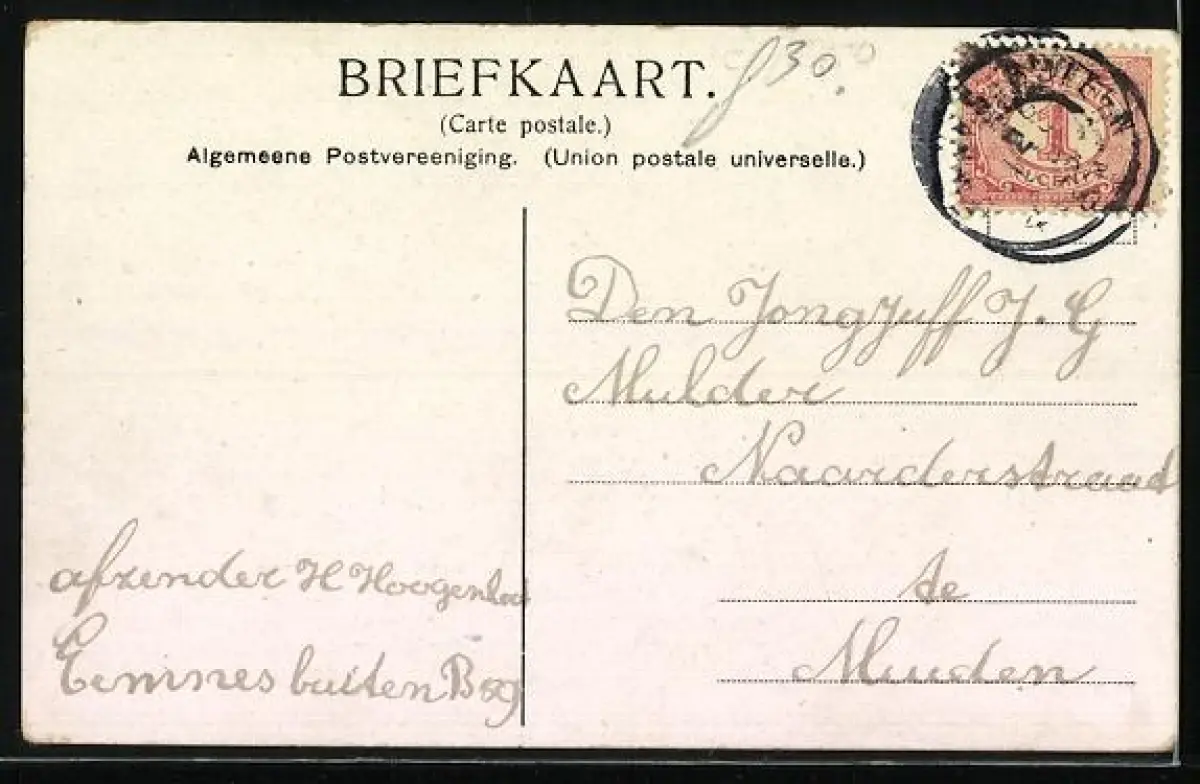 BRIEFKAART.
(Carte postale.)
Algemeene Postvereeniging. (Union postale universelle.)
f30.
1
CENT
Den Jongjuff J. G
Mulder
Naarderstraat
te
Muiden
afzender H Hoogen
Eemnes buiten B 59